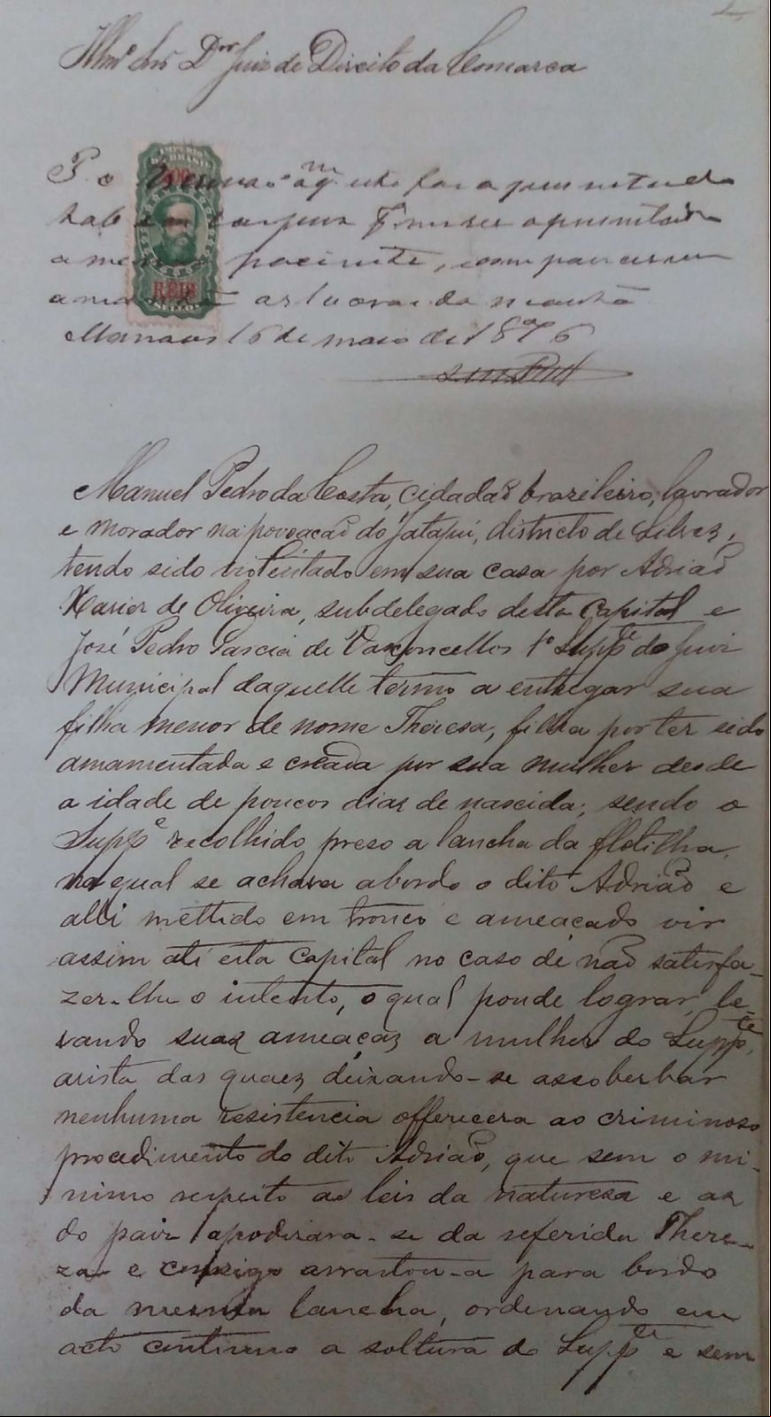 Illmo Snr Dor Juiz de Direito da Comarca
IMPERIO DO BRASIL
REIS
P. o para apresentada
habeas corpus
a mesma paciente, compareceu
as horas da manhã
Manaus 16 de maio de 1876
Manuel Pedro da Costa, cidadaõ brazileiro, lavrador
e morador na povoacaõ do Jatapú, districto de Silves,
tendo sido violentado em sua casa por Adriaõ
Xavier de Oliveira, subdelegado desta Capital e
José Pedro Garcia de Vasconcellos 1º Suppe do Juiz
Municipal daquelle termo a entregar sua
filha menor de nome Theresa, filha por ter sido
amamentada e creada por sua mulher desde
a idade de poucos dias de nascida; sendo o
Suppe recolhido preso a lancha da flotilha,
na qual se achava abordo o dito Adriaõ e
alli mettido em tronco e ameaçado vir
assim até esta Capital no caso de naõ satisfa-
zer-lhe o intento, o qual poude lograr, le-
vando suas ameaças a mulher do Suppte,
avista das quaes deixando-se assoberbar
nenhuma resistencia offerecera ao criminoso
procedimento do dito Adriaõ, que sem o mi-
nimo respeito as leis da natureza e as
do paiz apoderara-se da referida There-
za e comsigo arrastou-a para bordo
da mesma lancha, ordenando em
acto continuo a soltura do Suppte e sem